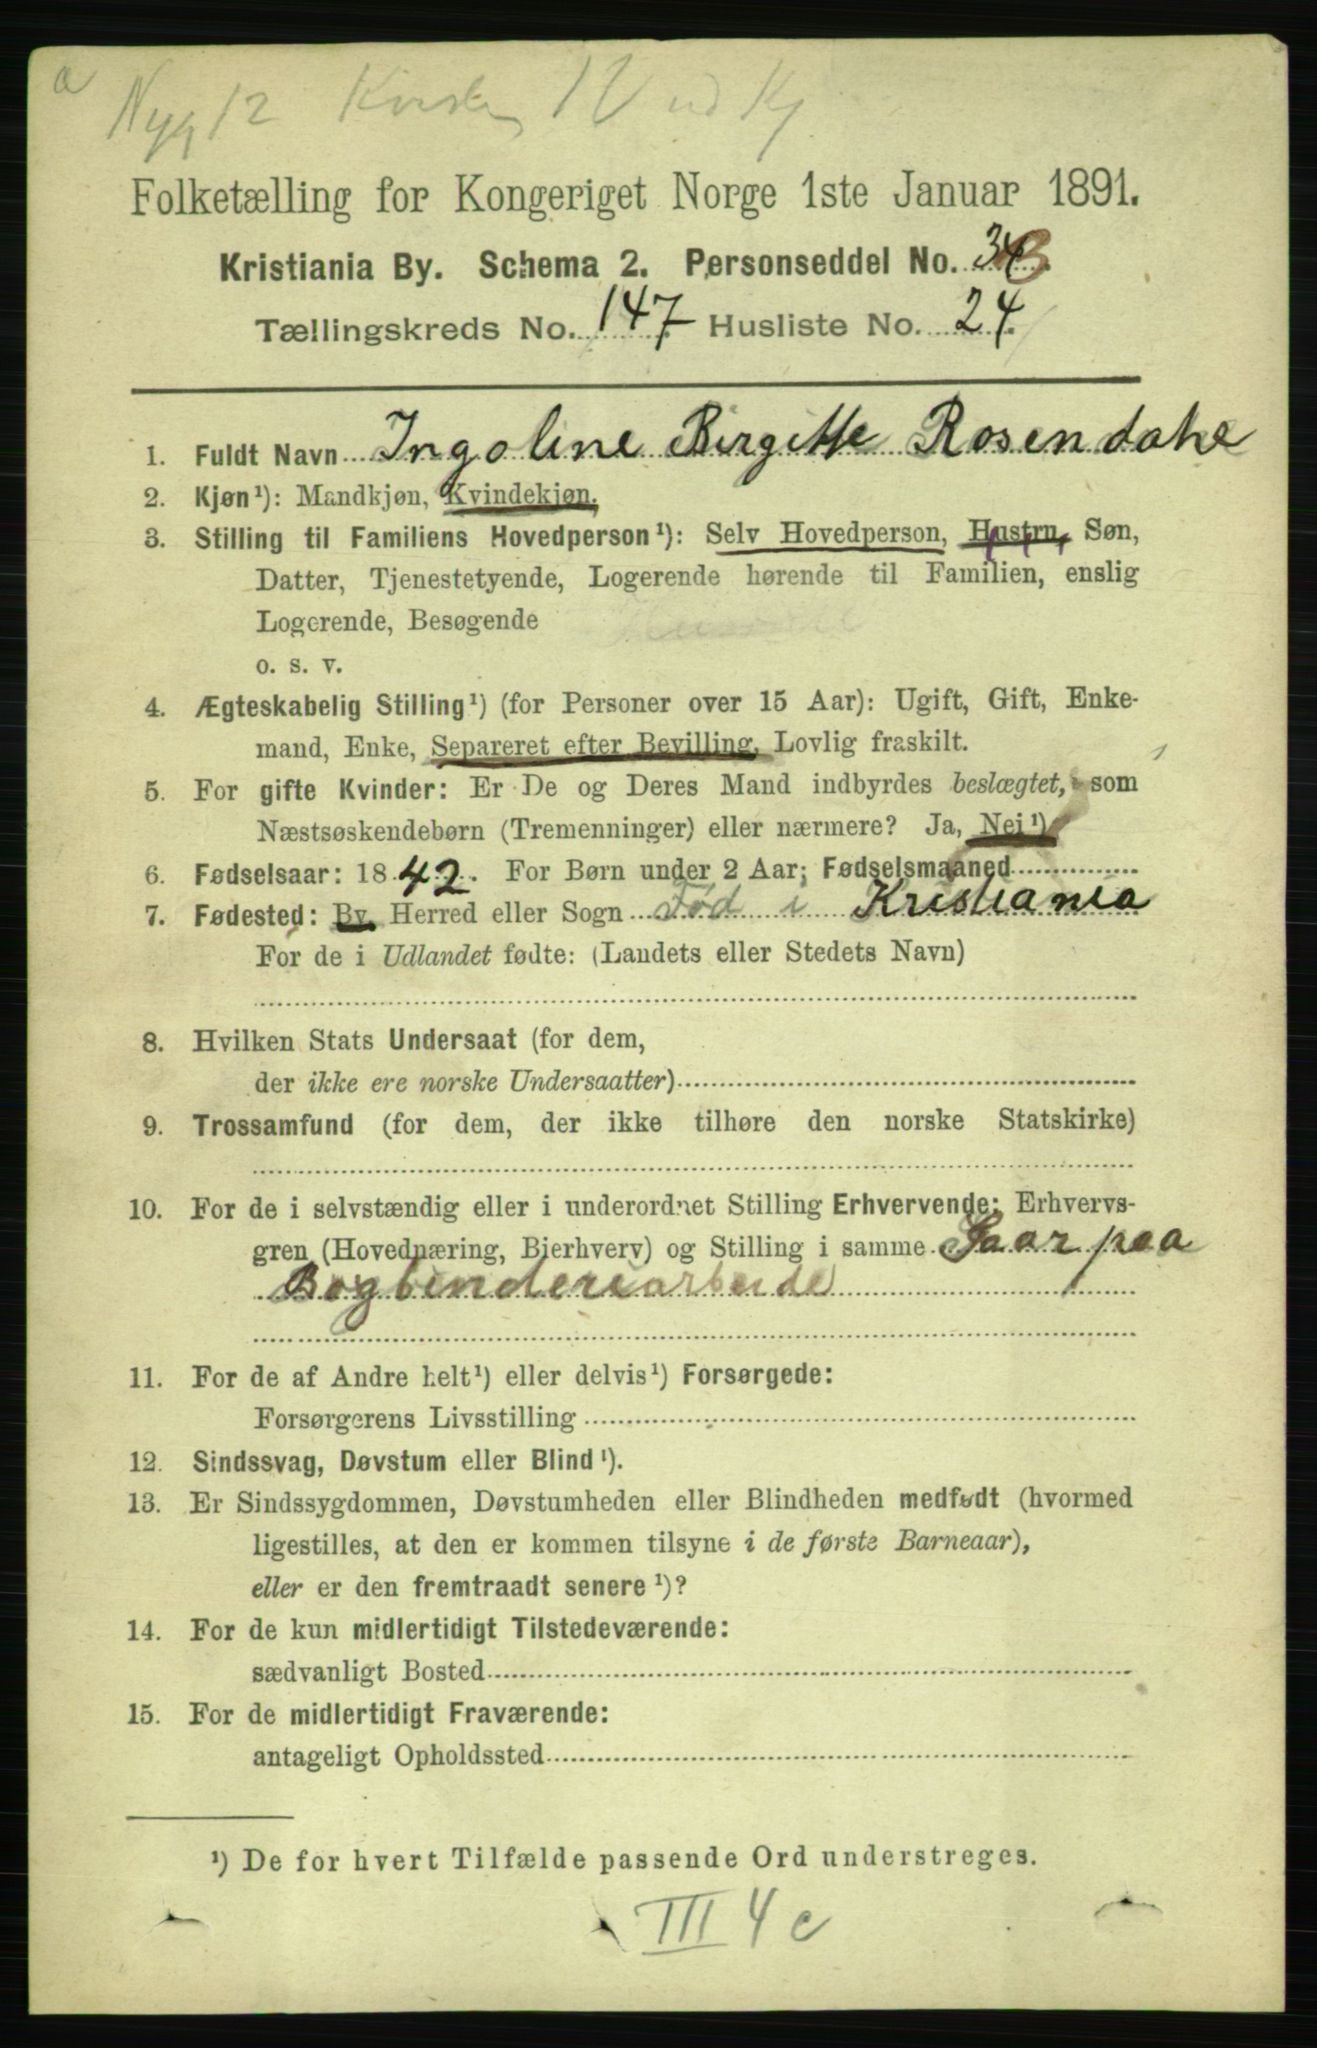 a
Nyg 12
Folketælling for Kongeriget Norge 1ste Januar 1891.
Kristiania By. Schema 2. Personseddel No. 34
Tællingskreds No. 147 Husliste No. 24.
1. Fuldt Navn Ingoline Birgitte Rosendahl
2. Kjøn¹): Mandkjøn, Kvindekjøn.
3. Stilling til Familiens Hovedperson¹): Selv Hovedperson, Hustru, Søn,
Datter, Tjenestetyende, Logerende hørende til Familien, enslig
Logerende, Besøgende
o. s. v.
4. Ægteskabelig Stilling¹) (for Personer over 15 Aar): Ugift, Gift, Enke-
mand, Enke, Separeret efter Bevilling, Lovlig fraskilt.
5. For gifte Kvinder: Er De og Deres Mand indbyrdes beslægtet, som
Næstsøskendebørn (Tremenninger) eller nærmere? Ja, Nei¹)
6. Fødselsaar: 1842. For Børn under 2 Aar; Fødselsmaaned
7. Fødested: By, Herred eller Sogn Fød i Kristiania
For de i Udlandet fødte: (Landets eller Stedets Navn)
8. Hvilken Stats Undersaat (for dem,
der ikke ere norske Undersaatter)
9. Trossamfund (for dem, der ikke tilhøre den norske Statskirke)
10. For de i selvstændig eller i underordnet Stilling Erhvervende: Erhvervs-
gren (Hovednæring, Bierhverv) og Stilling i samme Gaar paa
Bogbinderiarbeide
11. For de af Andre helt¹) eller delvis¹) Forsørgede:
Forsørgerens Livsstilling
12. Sindssvag, Døvstum eller Blind¹).
13. Er Sindssygdommen, Døvstumheden eller Blindheden medfødt (hvormed
ligestilles, at den er kommen tilsyne i de første Barneaar),
eller er den fremtraadt senere¹)?
14. For de kun midlertidigt Tilstedeværende:
sædvanligt Bosted
15. For de midlertidigt Fraværende:
antageligt Opholdssted
¹) De for hvert Tilfælde passende Ord understreges.
III 4 c